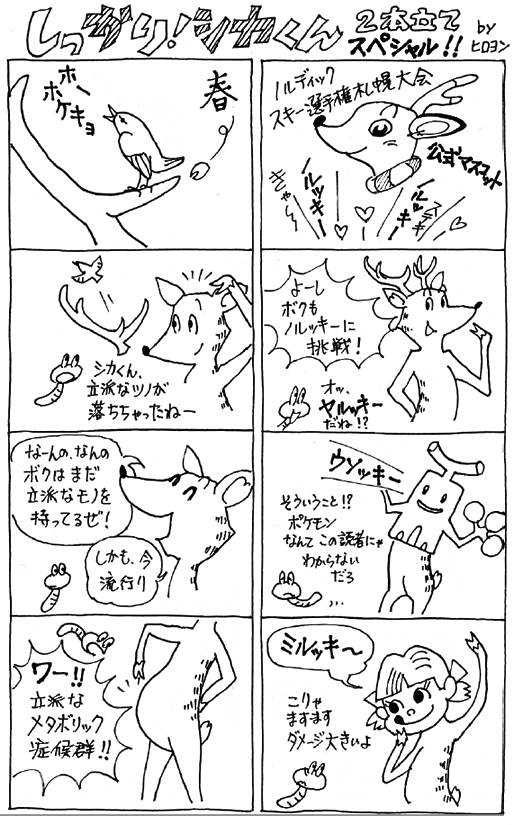 しっかり!シカくん
2本立て
スペシャル!!
by
ヒロヨン
ノルディック
スキー選手権札幌大会
公式マスコット
きゃ〜
ルッキー
ルッキー
ステキ
よーし
ボクも
ノルッキーに
挑戦!
オッ、
ヤルッキー
だね!?
ウソッキー
そういうこと!?
ポケモン
なんてこの読者にゃ
わからない
だろ
…
ミルッキ〜
こりゃ
ますます
ダメージ大きいよ
春
ホー
ホケキョ
シカくん、
立派なツノが
落ちちゃったねー
なーんの、なんの
ボクはまだ
立派なモノを
持ってるぜ!
しかも、今
流行り
ワー!!
立派な
メタボリック
症候群!!